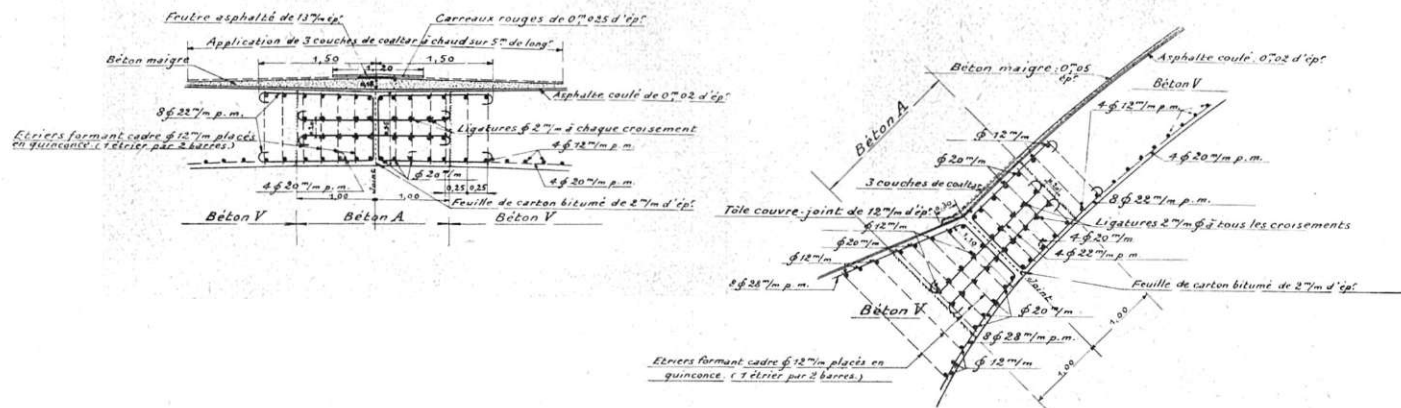 Feutre asphalté de 13 m/m ép.r
Carreaux rouges de 0m025 d'ép.r
Application de 3 couches de coaltar à chaud sur 5m de long.r
Béton maigre
1,50
1,50
1,20
Asphalte coulé de 0m02 d'ép.r
8 ϕ 22 m/m p.m.
Etriers formant cadre ϕ 12 m/m placés
en quinconce. (1 étrier par 2 barres.)
Ligatures ϕ 2 m/m à chaque croisement
4 ϕ 12 m/m p.m.
ϕ 20 m/m
4 ϕ 20 m/m p.m.
4 ϕ 20 m/m p.m.
0,25
0,25
1,00
Joint
1,00
Feuille de carton bitumé de 2 m/m d'ép.r
Béton V
Béton A
Béton V
Asphalte coulé: 0m02 d'ép.r
Béton maigre: 0m05
ép.r
Béton V
4 ϕ 12 m/m p.m.
Béton A
ϕ 12 m/m
ϕ 20 m/m
4 ϕ 20 m/m p.m.
3 couches de coaltar
8 ϕ 22 m/m p.m.
Tôle couvre-joint de 12 m/m d'ép.r
0,30
Ligatures 2 m/m ϕ à tous les croisements
ϕ 12 m/m
ϕ 20 m/m
1,10
4 ϕ 20 m/m
4 ϕ 22 m/m p.m.
ϕ 12 m/m
8 ϕ 28 m/m p.m.
Joint
Feuille de carton bitumé de 2 m/m d'ép.r
Béton V
ϕ 20 m/m
8 ϕ 28 m/m p.m.
1,00
1,00
Etriers formant cadre ϕ 12 m/m placés en
quinconce. (1 étrier par 2 barres.)
ϕ 12 m/m